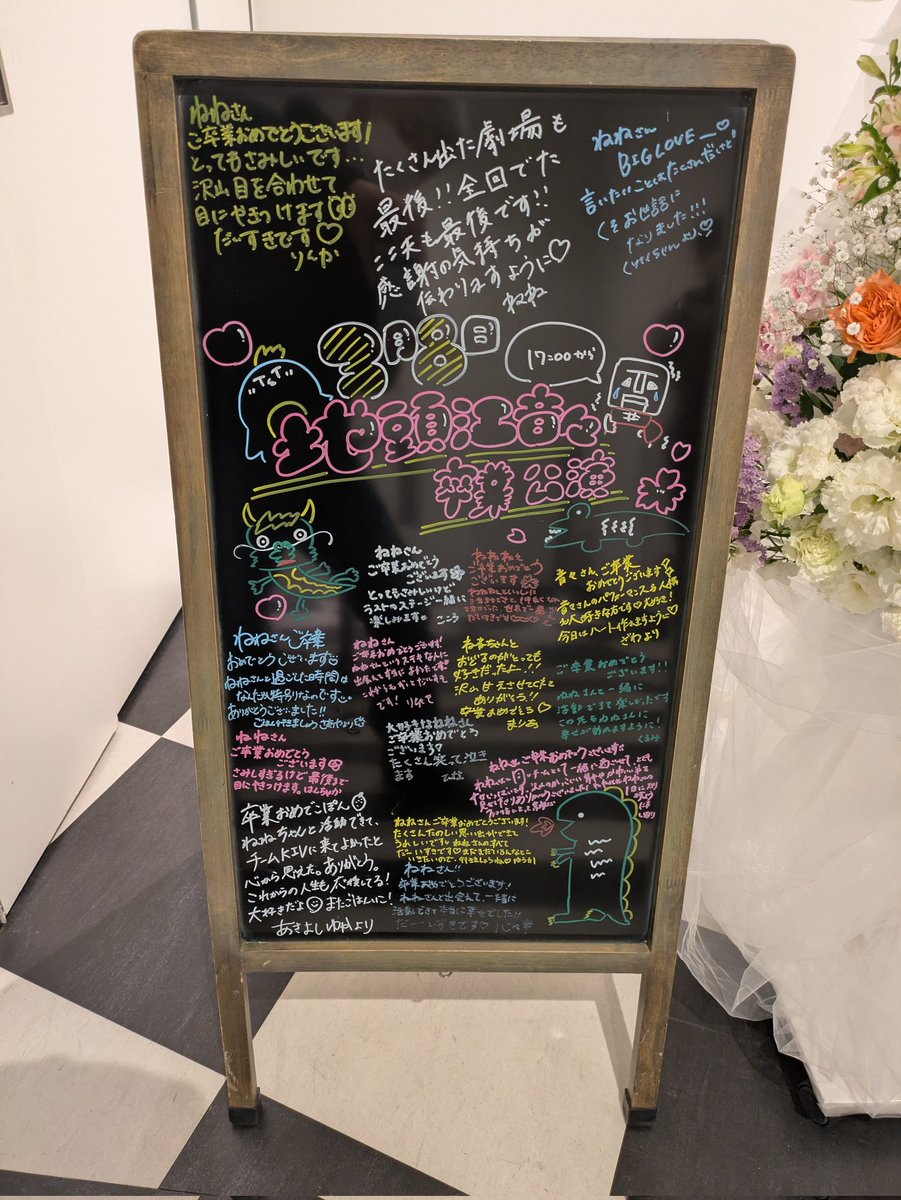 ねねさん
ご卒業おめでとうございます!
とってもさみしいです…
沢山目を合わせて
目にやきつけます
だいすきです♡
りんか
たくさん出た劇場も
最後!!全回でた
公演も最後です!!
感謝の気持ちが
伝わりますように♡
ねね
ねねさん
BIG LOVE―♡
言いたいことはたくさんだけど
くそお世話に
なりました!!!
3月8日
17:00から
地頭江音々
卒業公演
ねねさん
ご卒業おめでとう
ございます
とってもさみしいけど
ラストのステージ一緒に
楽しみます
こころ
ご卒業おめでとう
ございます
音々さん、ご卒業
おめでとうございます!
音々さんのパフォーマンスも人柄も
大好きです♡
今日はハート作れますように♡
ざわより
ねねさんご卒業
おめでとうございます
ねねさんと過ごした時間は
なんだか特別なのです
ありがとうございました!!
ごはん行きましょう
ねねさん
ご卒業おめでとうございます!
です!
ねねちゃんと
おどるのがとっても
好きだったよー!!
沢山甘えさせてくれて
ありがとう!!
卒業おめでとう♡
まりあ
ご卒業おめでとう
ございます!!
ねねさんと一緒に
活動できて楽しかったです
この先もねねさんに
幸せが訪れますように!
くるみ
ねねさん
ご卒業おめでとう
ございます
さみしすぎるけど最後まで
目にやきつけます。
大好きなねねさん
ご卒業おめでとう
ございます♡
たくさん笑って泣き
ます
ひなた
ご卒業おめでとうございます
卒業おめでこぽん
ねねちゃんと活動できて、
チームKIVに来てよかったと
心から思えた。ありがとう。
これからの人生も応援してる!
大好きだよ☺またごはんに!
あきよしゆかより
ねねさんご卒業おめでとうございます!
たくさんたのしい思い出ができて
うれしいです ねねさんのすべて
だーいすきです♡まだまだいろんなとこ
いきたいので、行きましょうね♡ゆうり
ねねさん!!
卒業おめでとうございます!
ねねさんと出会えて、一緒に
活動できて本当に幸せでした!!
だーいすきです♡